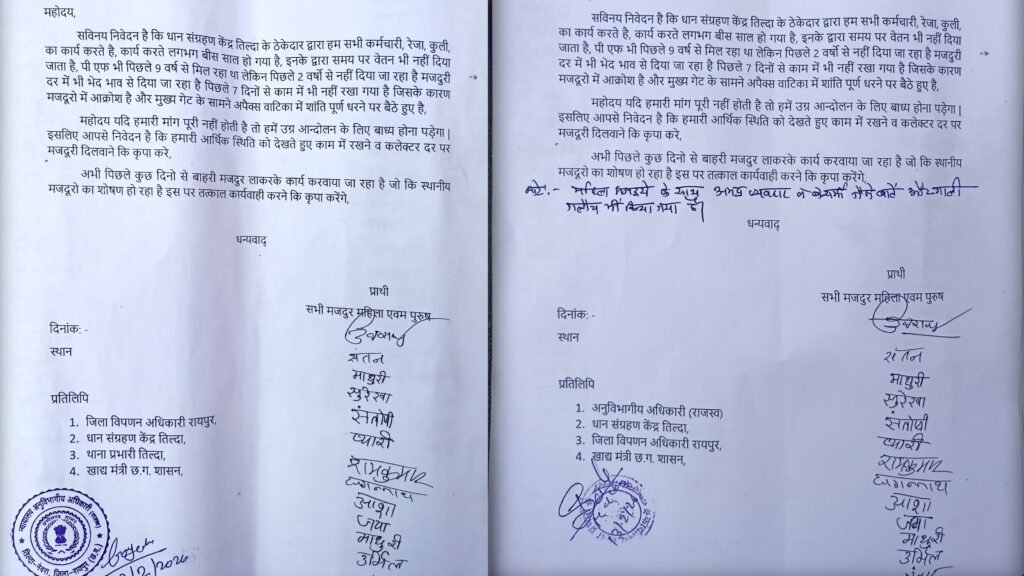 महोदय,
सविनय निवेदन है कि धान संग्रहण केंद्र तिल्दा के ठेकेदार द्वारा हम सभी कर्मचारी, रेजा, कुली,
का कार्य करते है, कार्य करते लगभग बीस साल हो गया है, इनके द्वारा समय पर वेतन भी नहीं दिया
जाता है, पी एफ भी पिछले 9 वर्ष से मिल रहा था लेकिन पिछले 2 वर्षो से नहीं दिया जा रहा है मजदुरी
दर में भी भेद भाव से दिया जा रहा है पिछले 7 दिनों से काम में भी नहीं रखा गया है जिसके कारण
मजदूरो में आक्रोश है और मुख्य गेट के सामने अपैक्स वाटिका में शांति पूर्ण धरने पर बैठे हुए है,
महोदय यदि हमारी मांग पूरी नहीं होती है तो हमें उग्र आन्दोलन के लिए बाध्य होना पड़ेगा |
इसलिए आपसे निवेदन है कि हमारी आर्थिक स्थिति को देखते हुए काम में रखने व कलेक्टर दर पर
मजदूरी दिलवाने कि कृपा करे,
अभी पिछले कुछ दिनो से बाहरी मजदुर लाकरके कार्य करवाया जा रहा है जो कि स्थानीय
मजदूरो का शोषण हो रहा है इस पर तत्काल कार्यवाही करने कि कृपा करेंगे,
धन्यवाद्
प्रार्थी
सभी मजदुर महिला एवम पुरुष
दिनांक: -
स्थान
संतन
माधुरी
सुरेखा
संतोषी
प्यारी
रामकुमार
जगन्नाथ
आशा
जया
माधुरी
उर्मिल
प्रतिलिपि
1. जिला विपणन अधिकारी रायपुर,
2. धान संग्रहण केंद्र तिल्दा,
3. थाना प्रभारी तिल्दा,
4. खाद्य मंत्री छ.ग. शासन,
सविनय निवेदन है कि धान संग्रहण केंद्र तिल्दा के ठेकेदार द्वारा हम सभी कर्मचारी, रेजा, कुली,
का कार्य करते है, कार्य करते लगभग बीस साल हो गया है, इनके द्वारा समय पर वेतन भी नहीं दिया
जाता है, पी एफ भी पिछले 9 वर्ष से मिल रहा था लेकिन पिछले 2 वर्षो से नहीं दिया जा रहा है मजदुरी
दर में भी भेद भाव से दिया जा रहा है पिछले 7 दिनों से काम में भी नहीं रखा गया है जिसके कारण
मजदूरो में आक्रोश है और मुख्य गेट के सामने अपैक्स वाटिका में शांति पूर्ण धरने पर बैठे हुए है,
महोदय यदि हमारी मांग पूरी नहीं होती है तो हमें उग्र आन्दोलन के लिए बाध्य होना पड़ेगा |
इसलिए आपसे निवेदन है कि हमारी आर्थिक स्थिति को देखते हुए काम में रखने व कलेक्टर दर पर
मजदूरी दिलवाने कि कृपा करे,
अभी पिछले कुछ दिनो से बाहरी मजदुर लाकरके कार्य करवाया जा रहा है जो कि स्थानीय
मजदूरो का शोषण हो रहा है इस पर तत्काल कार्यवाही करने कि कृपा करेंगे,
नोट:- महिला के साथ अभद्र व्यवहार
गलौच भी किया गया है|
धन्यवाद्
प्रार्थी
सभी मजदुर महिला एवम पुरुष
दिनांक: -
स्थान
संतन
माधुरी
सुरेखा
संतोषी
प्यारी
रामकुमार
जगन्नाथ
आशा
जया
माधुरी
उर्मिल
प्रतिलिपि
1. अनुविभागीय अधिकारी (राजस्व)
2. धान संग्रहण केंद्र तिल्दा,
3. जिला विपणन अधिकारी रायपुर,
4. खाद्य मंत्री छ.ग. शासन,